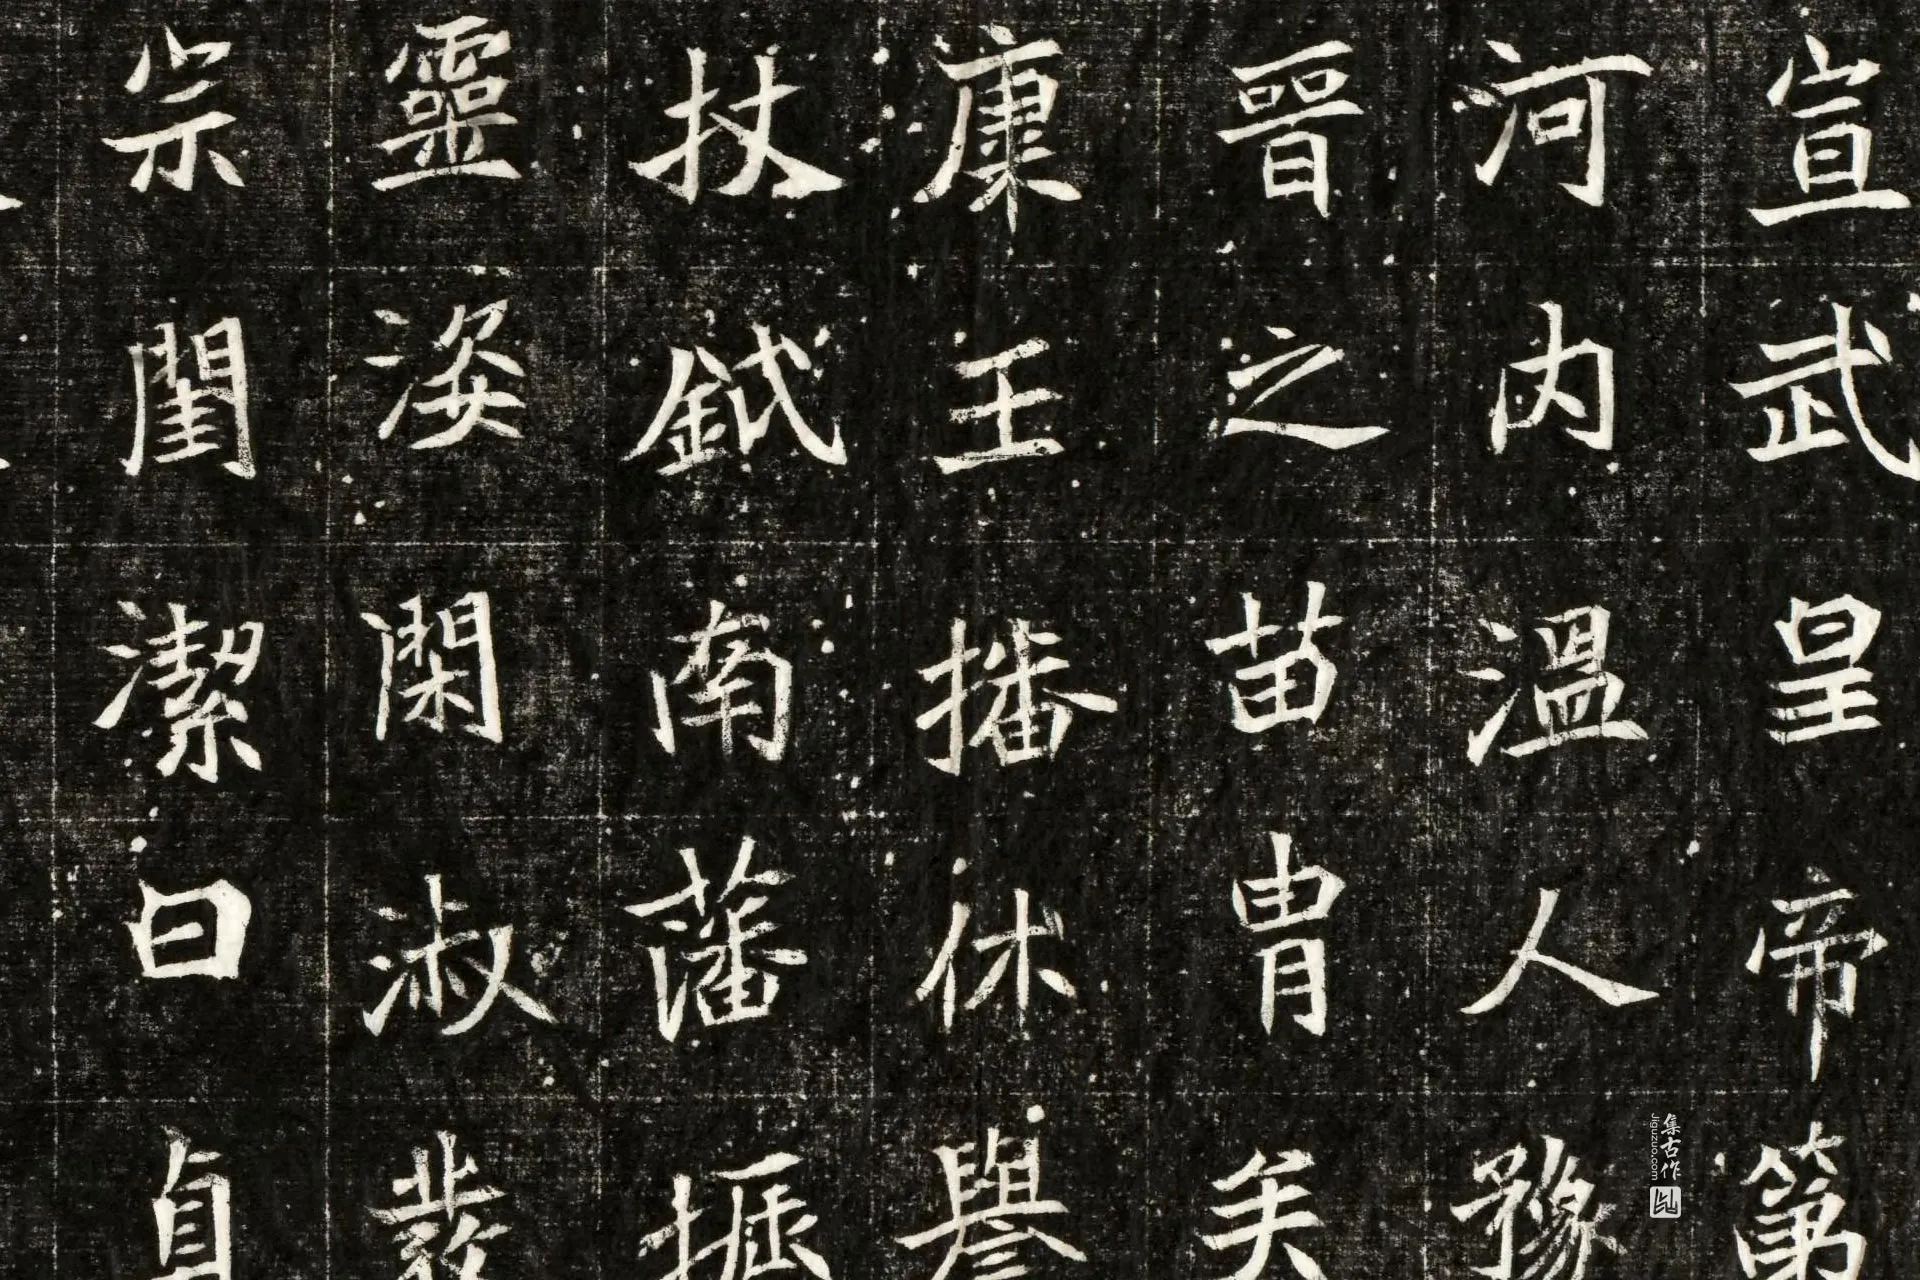 宣武皇帝第
河内溫人豫
晉之苗冑矣
康王播休譽
扙鉞南藩振
靈姿閑淑裴
宗閨潔曰貞
集古作
Jiguzuo.com